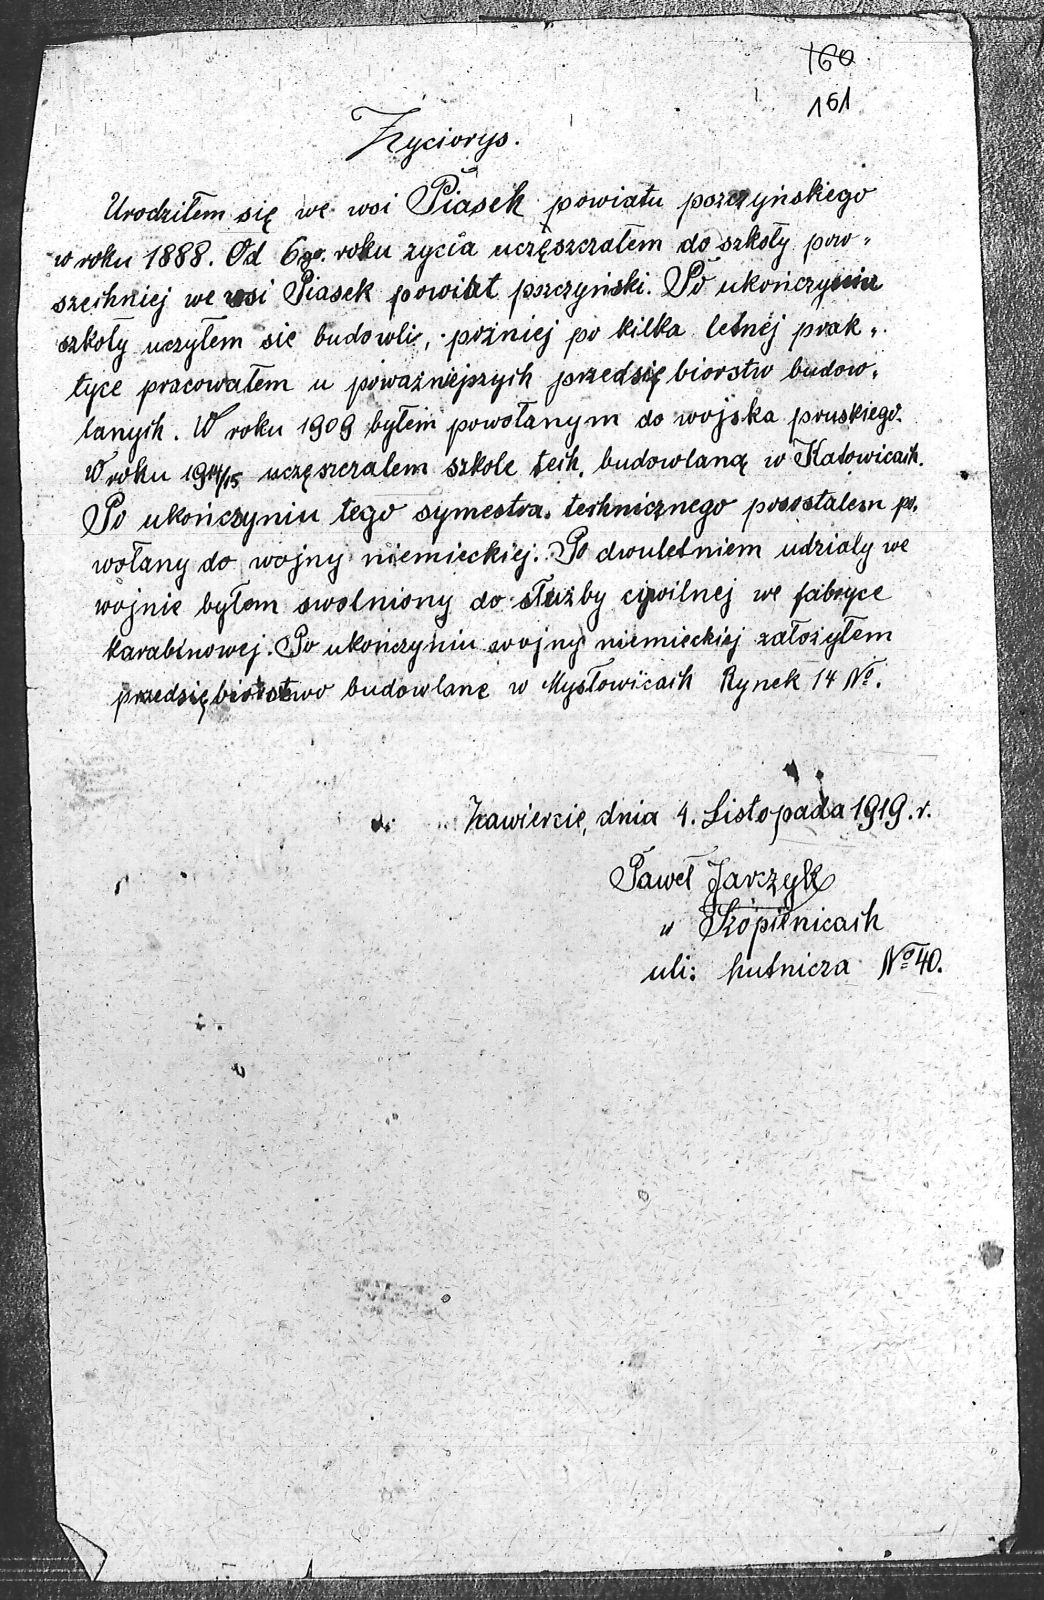 160
161
Życiorys.
Urodziłem się we wsi Piasek powiatu pszczyńskiego
w roku 1888. Od 6go. roku zycia uczęszczałem do szkoły pow„
szechniej we wsi Piasek powiat pszczyński. Po ukończyniu
szkoły uczyłem sie budowli, później po kilka letnéj prak„
tyce pracowałem u poważniejszych przedsiębiorstw budow„
lanych. W roku 1909 byłem powołanym do wojska pruskiego.
W roku 1914/15 uczęszczalem szkole tech. budowlaną w Katowicach.
Po ukończyniu tego symestra. technicznego posostalem po„
wołany do wojny niemieckiej. Po dwuletniem udziały we
wojnie byłem swolniony do służby cywilnej we fabryce
karabinowej. Po ukończyniu wojny niemieckiej założyłem
przedsiębiorstwo budowlane w Mysłowicach Rynek 14 No.
Zawiercie, dnia 4. Listopada 1919. r.
Paweł Jarczyk
w Szopienicach
uli: hutnicza No 40.